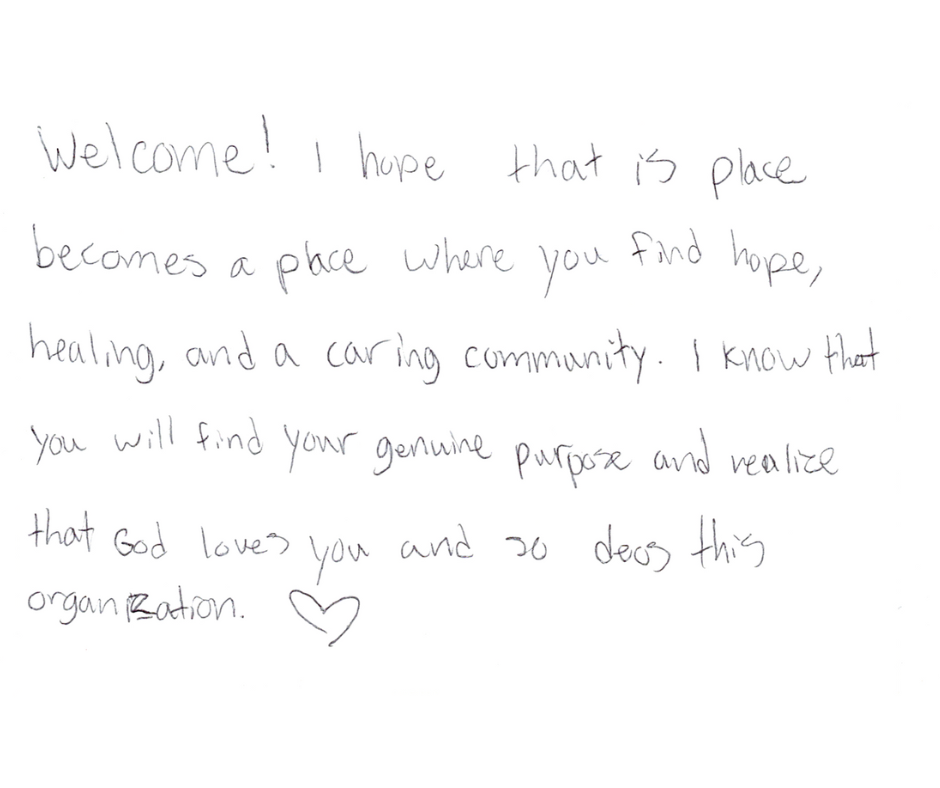 Welcome! I hope that is place
becomes a place where you find hope,
healing, and a caring community. I know that
you will find your genuine purpose and realize
that God loves you and so deos this
organization.